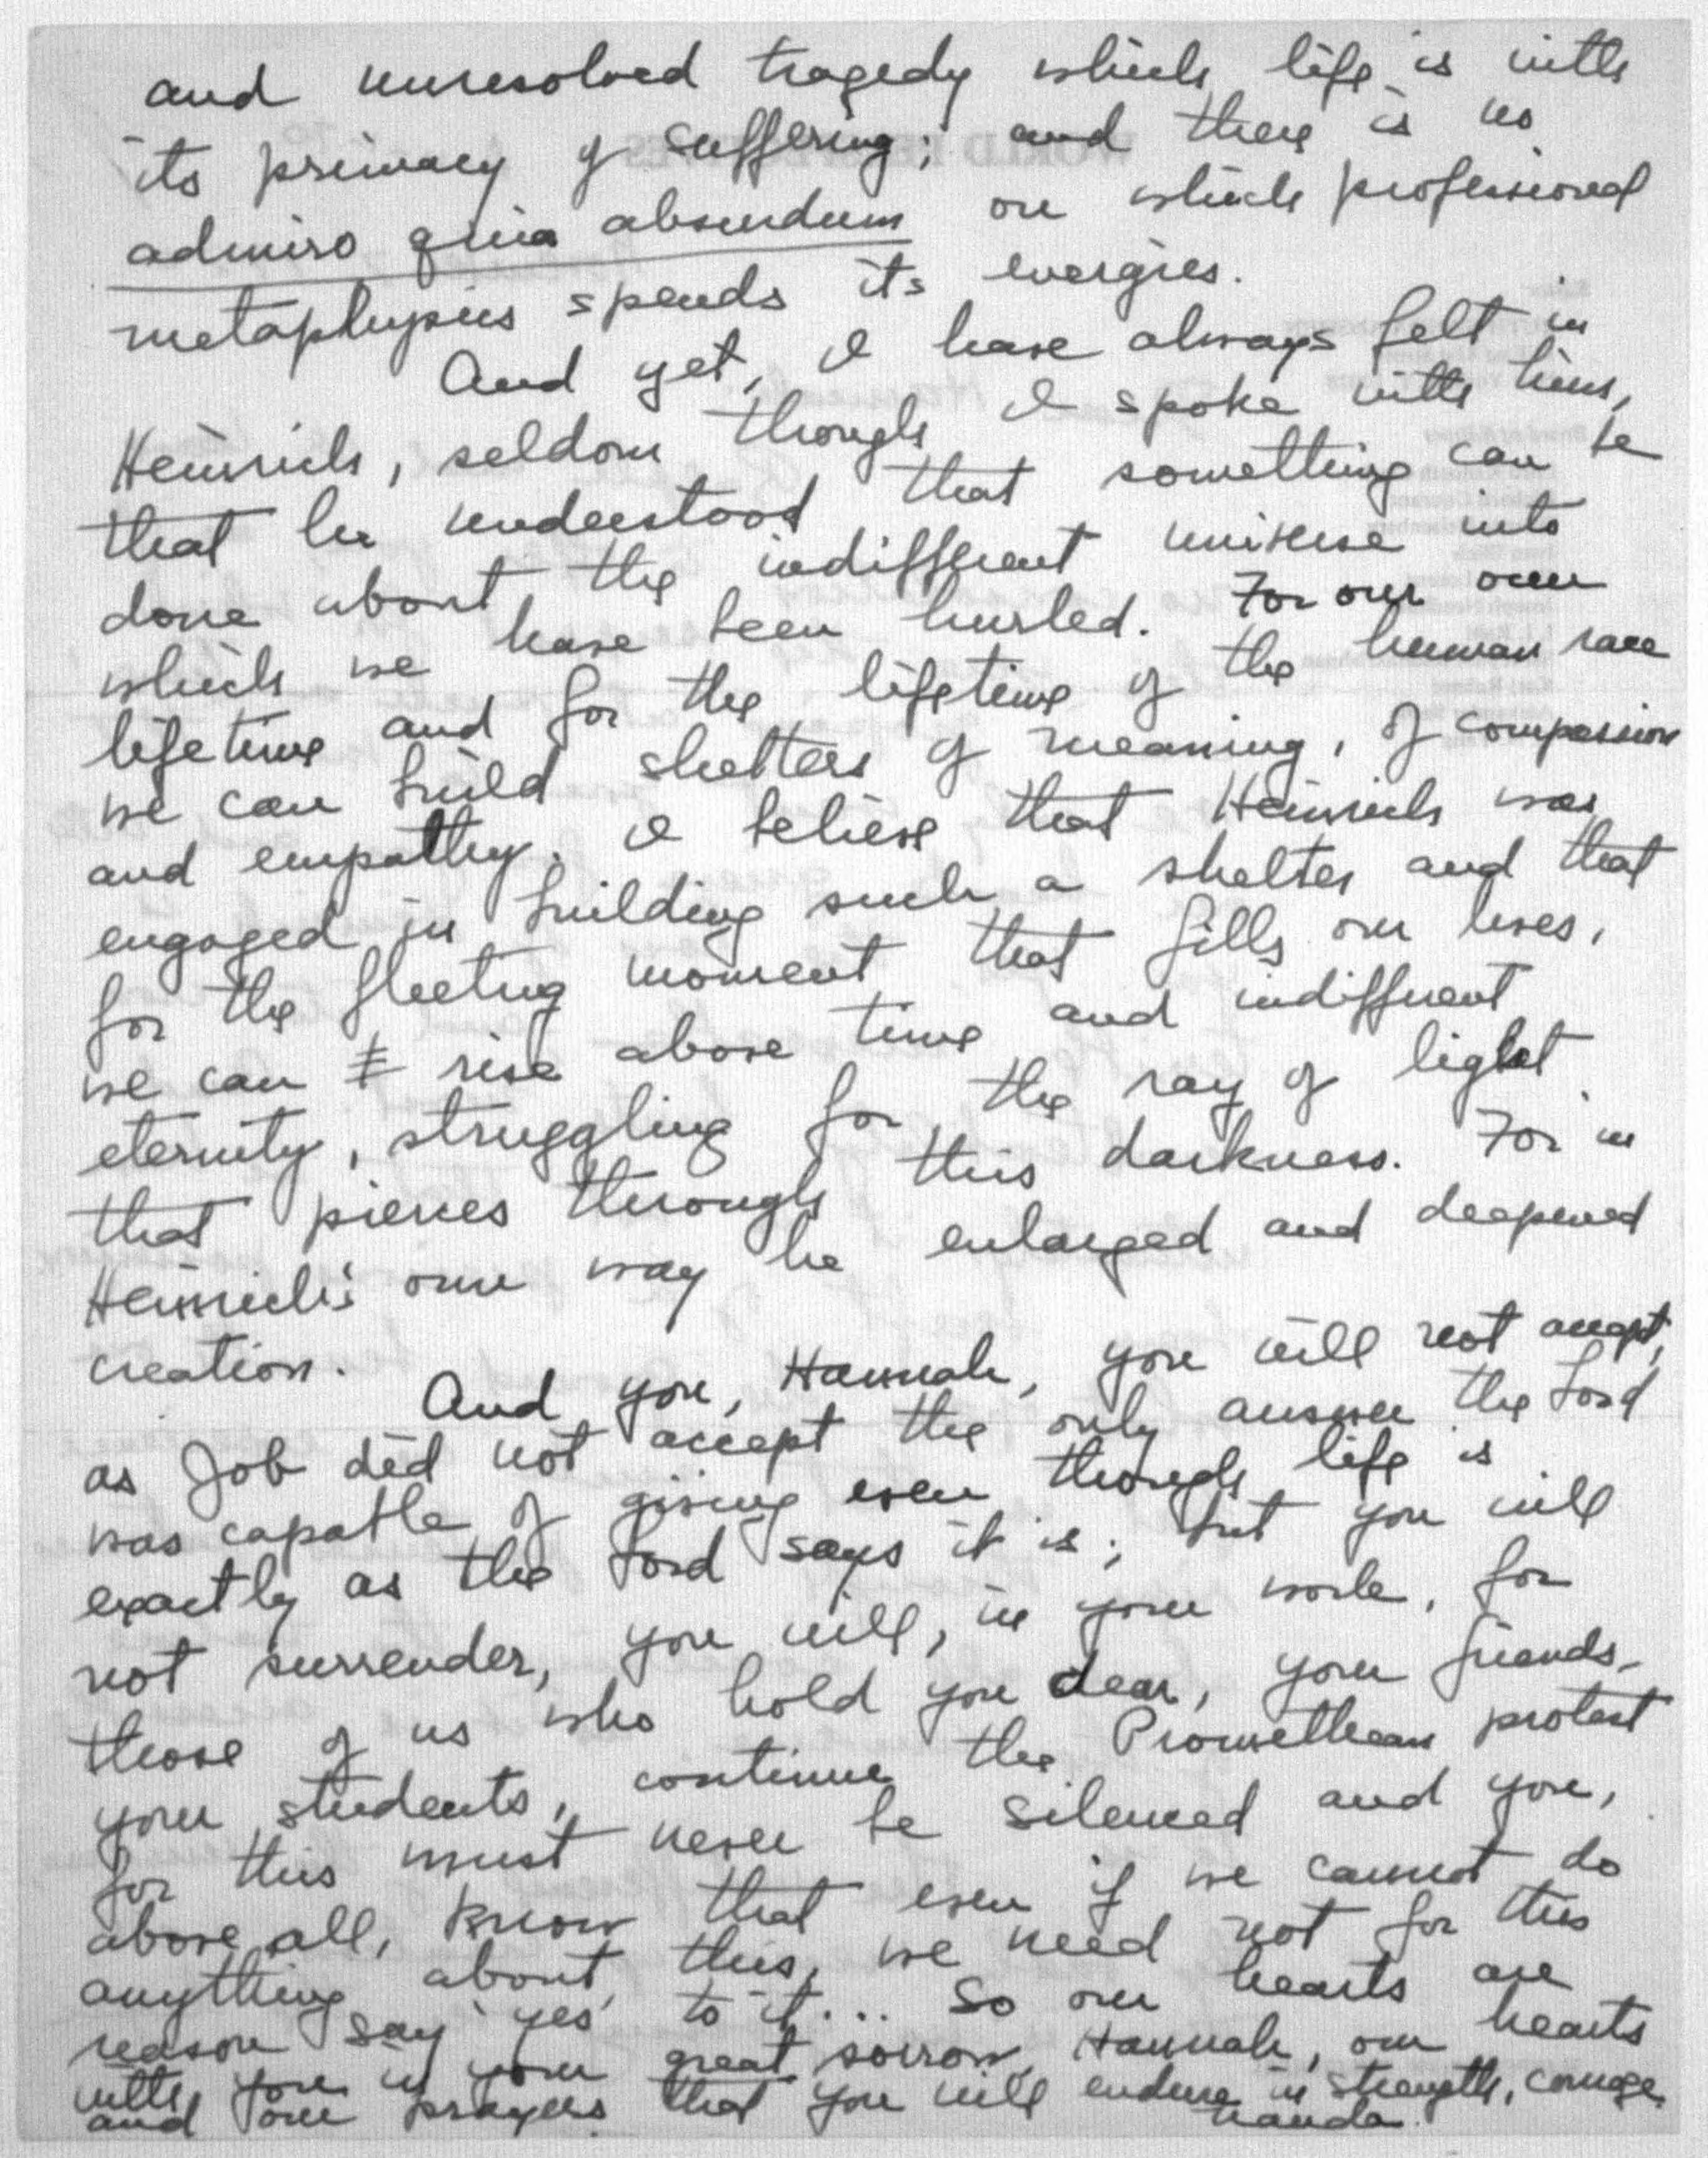 and unresolved tragedy which life is with
its primacy of suffering; and there is no
admiro quia absurdum on which professional
metaphysics spends its energies.
And yet, I have always felt in
Heinrich, seldom though I spoke with him,
that he understood that something can be
done about the indifferent universe into
which we have been hurled. For our own
lifetime and for the lifetime of the human race
we can build shelters of meaning, of compassion
and empathy. I believe that Heinrich was
engaged in building such a shelter and that
for the fleeting moment that fills our lives,
we can rise above time and indifferent
eternity, struggling for the ray of light
that pierces through this darkness. For in
Heinrich's own way he enlarged and deepened
creation.
And you, Hannah, you will not accept,
as Job did not accept the only answer the Lord
was capable of giving even though life is
exactly as the Lord says it is; but you will
not surrender, you will, in your work, for
those of us who hold you dear, your friends,
your students, continue the Promethean protest
for this must never be silenced and you,
above all, know that even if we cannot do
anything about this, we need not for this
reason say 'yes' to it... So our hearts are
with you in your great sorrow, Hannah, our hearts
and our prayers that you will endure in strength, courage